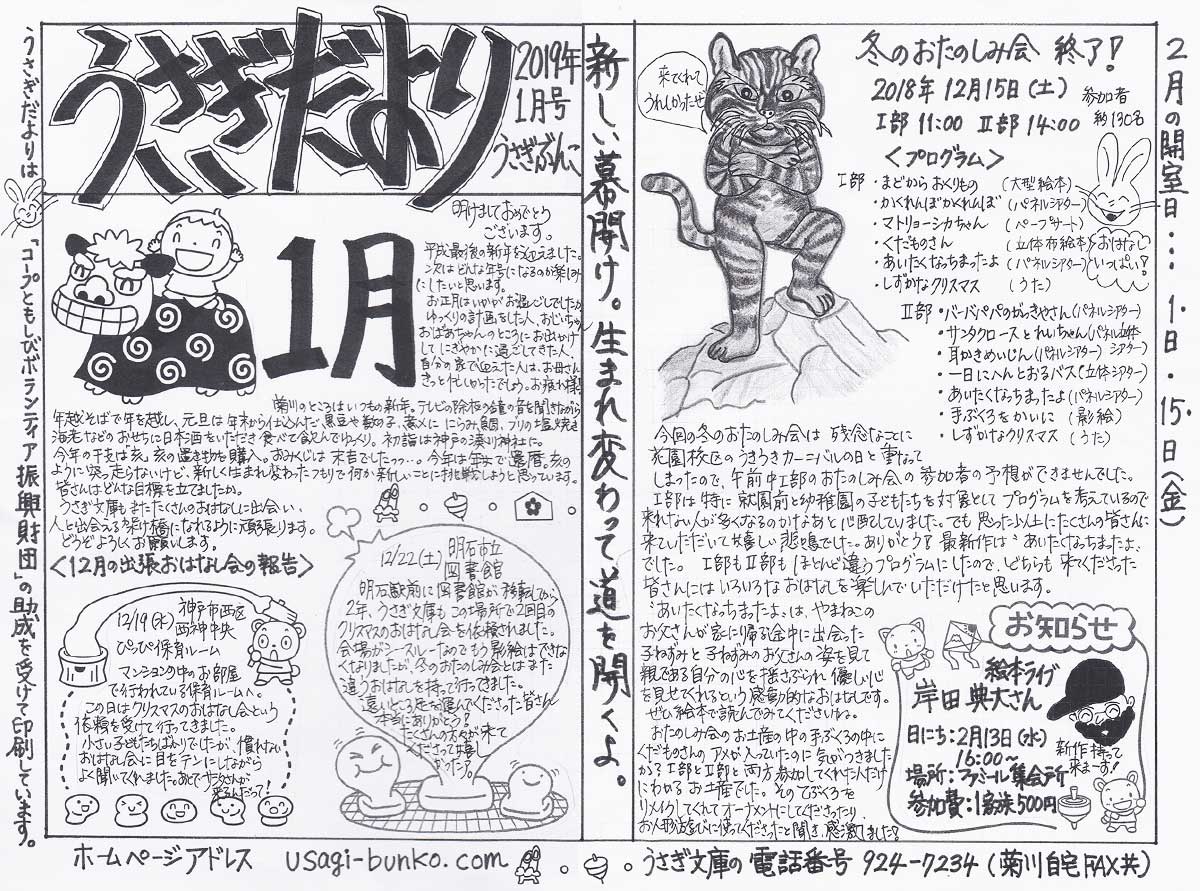 うさぎだより
2019年
1月号
うさぎぶんこ
うさぎだよりは「コープともしびボランティア振興財団」の助成を受けて印刷しています。
1月
明けましておめでとう
ございます。
平成最後の新年を迎えました。
次はどんな年号になるのか楽しみ
にしたいと思います。
お正月はいかがお過ごしでしたか。
ゆっくりの計画をした人、おじいちゃん
おばあちゃんのところにお出かけ
してにぎやかに過ごしてきた人、
自分の家で迎えた人は、お母さん
きっと忙しかったでしょう。お疲れ様!
菊川のところはいつもの新年。テレビの除夜の鐘の音を聞きながら
年越そばで年を越し、元旦は年末から仕込んだ黒豆や数の子、煮〆に にらみ鯛、ブリの塩焼き
海老などのおせちに日本酒をいただき食べて飲んでゆっくり。初詣は神戸の湊川神社に。
今年の干支は亥。亥の置き物を購入。おみくじは末吉でしたっっ…。今年は年女で還暦。亥の
ように突っ走らないけど、新しく生まれ変わったつもりで何か新しいことに挑戦しようと思っています。
皆さんはどんな目標を立てましたか。
うさぎ文庫もまたたくさんのおはなしに出会い、
人と出会える架け橋になれるように頑張ります。
どうぞよろしくお願いします。
<12月の出張おはなし会の報告>
12/19(水)
神戸市西区
西神中央
ぴっぴ保育ルーム
マンションの中のお部屋
で行われている保育ルームへ。
この日はクリスマスのおはなし会という
依頼を受けて行ってきました。
小さい子どもたちばかりでしたが、慣れない
おはなし会に目をテンにしながら
よく聞いてくれました。あとでサンタさんが
来るんだって!
12/22(土)
明石市立
図書館
明石駅前に図書館が移転してから
2年、うさぎ文庫もこの場所で2回目の
クリスマスのおはなし会を依頼されました。
会場がシースルーなのでもう影絵はできな
くなりましたが、冬のおたのしみ会とはまた
違うおはなしを持って行ってきました。
遠いところ足を運んでくださった皆さん
本当にありがとう!
たくさんの方々が来て
くださって嬉し
かった!
新しい幕開け。生まれ変わって道を開くよ。
来てくれて
うれしかったぜ
冬のおたのしみ会 終了!
2018年 12月15日(土)
Ⅰ部 11:00 Ⅱ部 14:00
参加者
約130名
<プログラム>
Ⅰ部・まどからおくりもの (大型絵本)
・かくれんぼかくれんぼ (パネルシアター)
・マトリョーシカちゃん (ペープサート)
・くだものさん (立体布絵本)
・あいたくなっちまったよ (パネルシアター)
・しずかなクリスマス (うた)
おはなし
いっぱい!
Ⅱ部・バーバパパのがっきやさん(パネルシアター)
・サンタクロースとれいちゃん(パネル立体シアター)
・耳かきめいじん(パネルシアター)
・一日にへんとおるバス(立体シアター)
・あいたくなっちまったよ(パネルシアター)
・手ぶくろをかいに (影絵)
・しずかなクリスマス (うた)
今回の冬のおたのしみ会は 残念なことに
花園校区のうきうきカーニバルの日と重なって
しまったので、午前中Ⅰ部のおたのしみ会の参加者の予想ができませんでした。
Ⅰ部は特に就園前と幼稚園の子どもたちを対象としてプログラムを考えているので
来れない人が多くなるのかなあと心配していました。でも思った以上にたくさんの皆さんに
来ていただいて嬉しい悲鳴でした。ありがとう! 最新作は“あいたくなっちまったよ”
でした。Ⅰ部もⅡ部もほとんど違うプログラムにしたので、どちらも来てくださった
皆さんにはいろいろなおはなしを楽しんでいただけたと思います。
“あいたくなっちまったよ”は、やまねこの
お父さんが家に帰る途中に出会った
子ねずみと子ねずみのお父さんの姿を見て
親である自分の心を揺さぶられ優しい心
を見せてくれるという感動的なおはなしです。
ぜひ絵本で読んでみてくださいね。
おたのしみ会のお土産の中の手ぶくろの中に
くだものさんのアメが入っていたのに気がつきました
か? Ⅰ部とⅡ部と両方参加してくれた人だけ
にわかるお土産でした。その手ぶくろを
リメイクしてくれてオーナメントにしてくださったり、
お人形遊びに使ってくださったと聞き、感激しました!
お知らせ
絵本ライブ
岸田 典大さん
日にち:2月13日(水)
16:00〜
場所:ファミール集会所
参加費:1家族500円
新作持って
来まーす!
2月の開室日…1日・15日(金)
ホームページアドレス usagi-bunko.com
うさぎ文庫の電話番号 924-7234(菊川自宅FAX共)